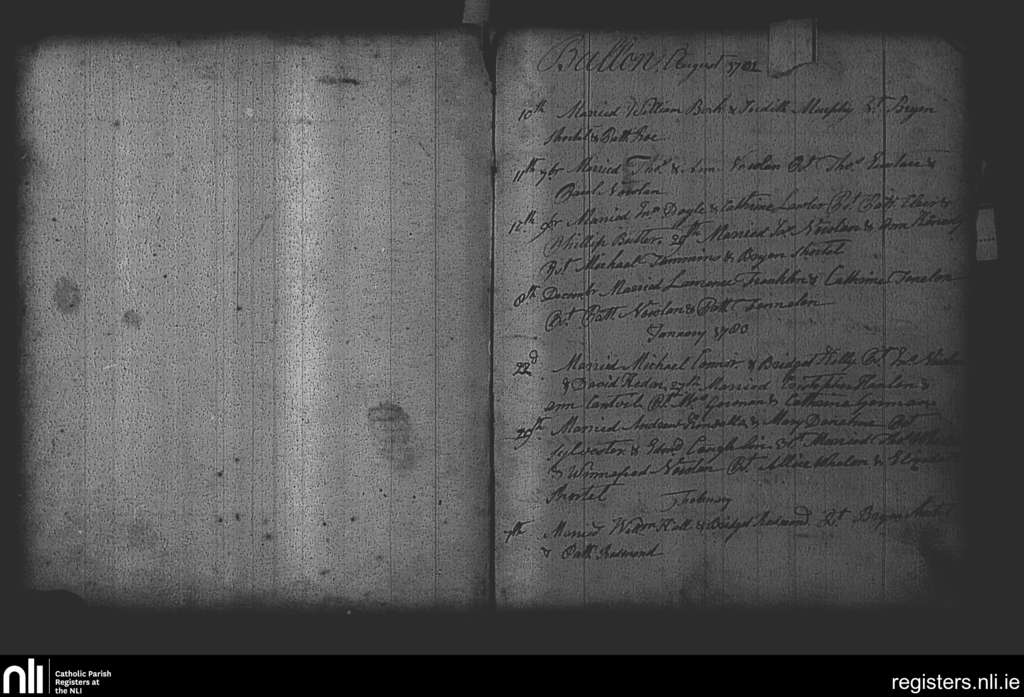 Ballon August 1782
10th Married William Bork & Judith Murphy Pt. Bryan
Shortel & Patt Roe
11th 9br Married Thos. & Ann Nowlan Pt. Thos. &
Nowlan
12th 9br Married Jno. Doyle & Catherine Lawler Pt. Patt &
Phillip Butler. 29th Married Jno. Nowlan & Ann
Pt. Michael Timmins & Bryan Shortel
8th December Married Lawrence Franklin & Catherine Fenelon
Pt. Patt. Nowlan & Patt Fennelon
January 1783
22d Married Michael Connor & Bridget Kelly Pt. Jno.
& David Hedan 27th Married Cristopher Hanlon &
Ann Pt. Gorman & Catherine Gorman
29th Married Andrew & Mary Donahue Pt.
Sylvester & Edwd. Married Thos. Whelan
& Winnefred Nowlan Pt. Allice Whelan &
Shortel
February
7th Married Willm. Hall & Bridget Redmond Pt. Bryan
& Cath. Redmond
nli Catholic Parish
Registers at
the NLI
registers.nli.ie